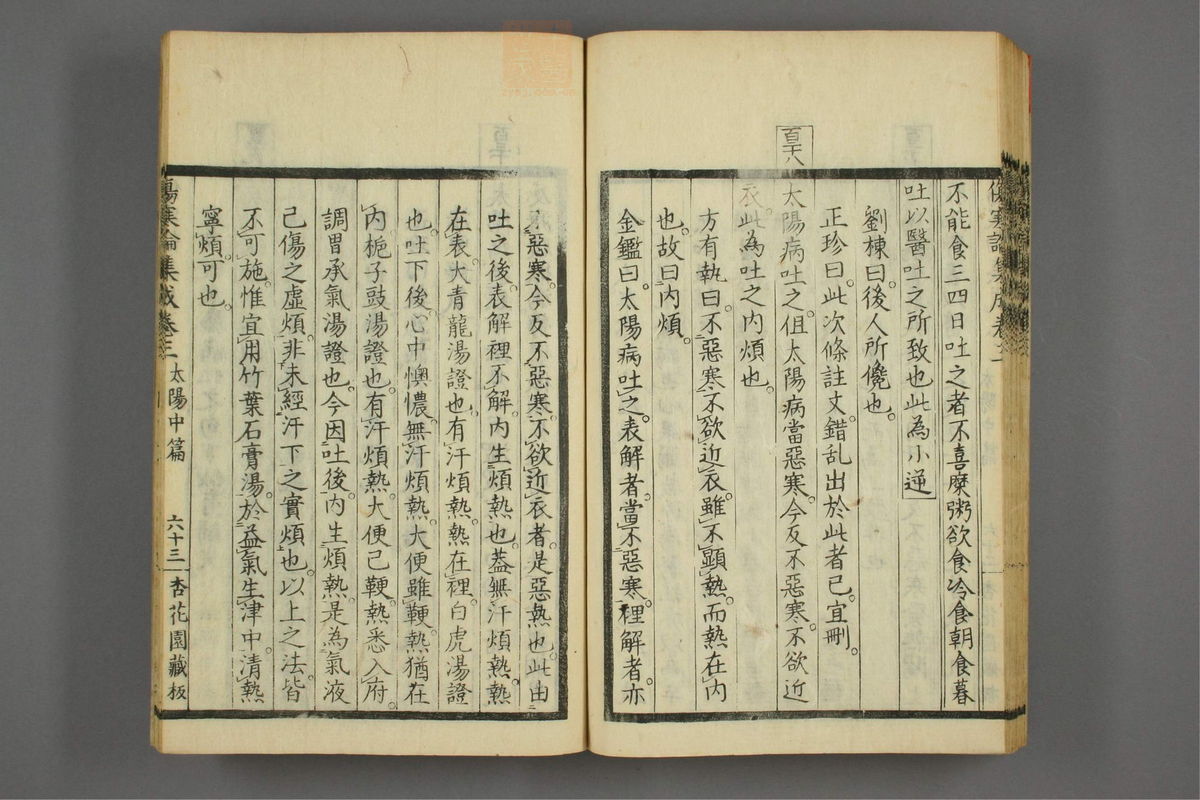 不能食三四日吐之者不喜糜粥欲食冷食朝食暮
吐以醫吐之所致也此為小逆
劉棟曰後人所攙也
正珍曰此次條註文錯乱出於此者已宜刪
百十八
太陽病吐之但太陽病當惡寒今反不惡寒不欲近
衣此為吐之内煩也
方有執曰不惡寒不欲近衣雖不顕熱而熱在内
也故曰内煩
金鑑曰太陽病吐之表解者當不惡寒裡解者亦
不惡寒今反不惡寒不欲近衣者是惡熱也此由
吐之後表解裡不解内生煩熱也葢無汗煩熱熱
在表大青龍湯證也有汗煩熱熱在裡白虎湯證
也吐下後心中懊憹無汗煩熱大便雖鞕熱猶在
内梔子豉湯證也有汗煩熱大便已鞕熱悉入府
調胃承氣湯證也今因吐後内生煩熱是為氣液
已傷之虛煩非未經汗下之實煩也以上之法皆
不可施惟宜用竹葉石膏湯於益氣生津中清熱
寧煩可也
傷寒論集成卷三 太陽中篇 六十三 杏花園藏板